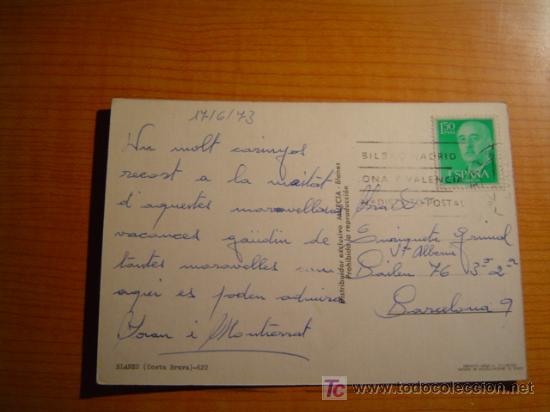 17/6/73
Un molt carinyos
recort a la
d'aquestes maravelloses
vacances gaudin de
tantes maravelles com
aqui es poden admirar
Joan i Montserrat
BLANES (Costa Brava)-622
Distribuidor exclusivo MURCIA - Blanes
Prohibida la reproducción
1,50
ESPAÑA
BILBAO MADRID
ONA Y VALENCIA
POSTAL
Sra
Enriqueta
Bailen 76 3º 2ª
Barcelona 9
todocoleccion
todocoleccion.net